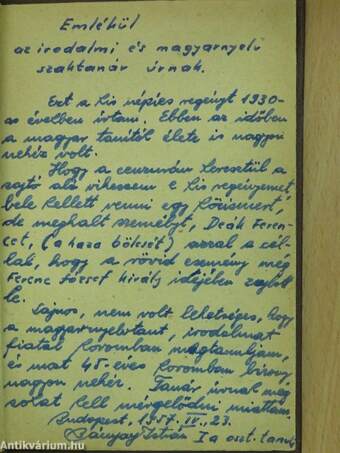 Emlékül
az irodalmi és magyarnyelv
szaktanár úrnak.
Ezt a kis népies regényt 1930-
as években irtam. Ebben az időben
a magyar tanitók élete is nagyon
nehéz volt.
Hogy a cenzurán keresztül a
sajtó alá vihessem e kis regényemet
bele kellett venni egy közismert,
de meghalt személyt, Deák Feren-
cet, (a haza bölcsét) azzal a cél-
lal, hogy a rövid esemény még
Ferenc József király idejében zajlott
le.
Sajnos, nem volt lehetséges, hogy
a magyarnyelvtant, irodalmat
fiatal koromban megtanuljam,
és mai 48-éves koromban bizony
nagyon nehéz. Tanár úrnak meg
sokat kell mérgelődni miattam.
Budapest, 1957. IV. 23.
István I a oszt. tanuló
Antikvárium.hu